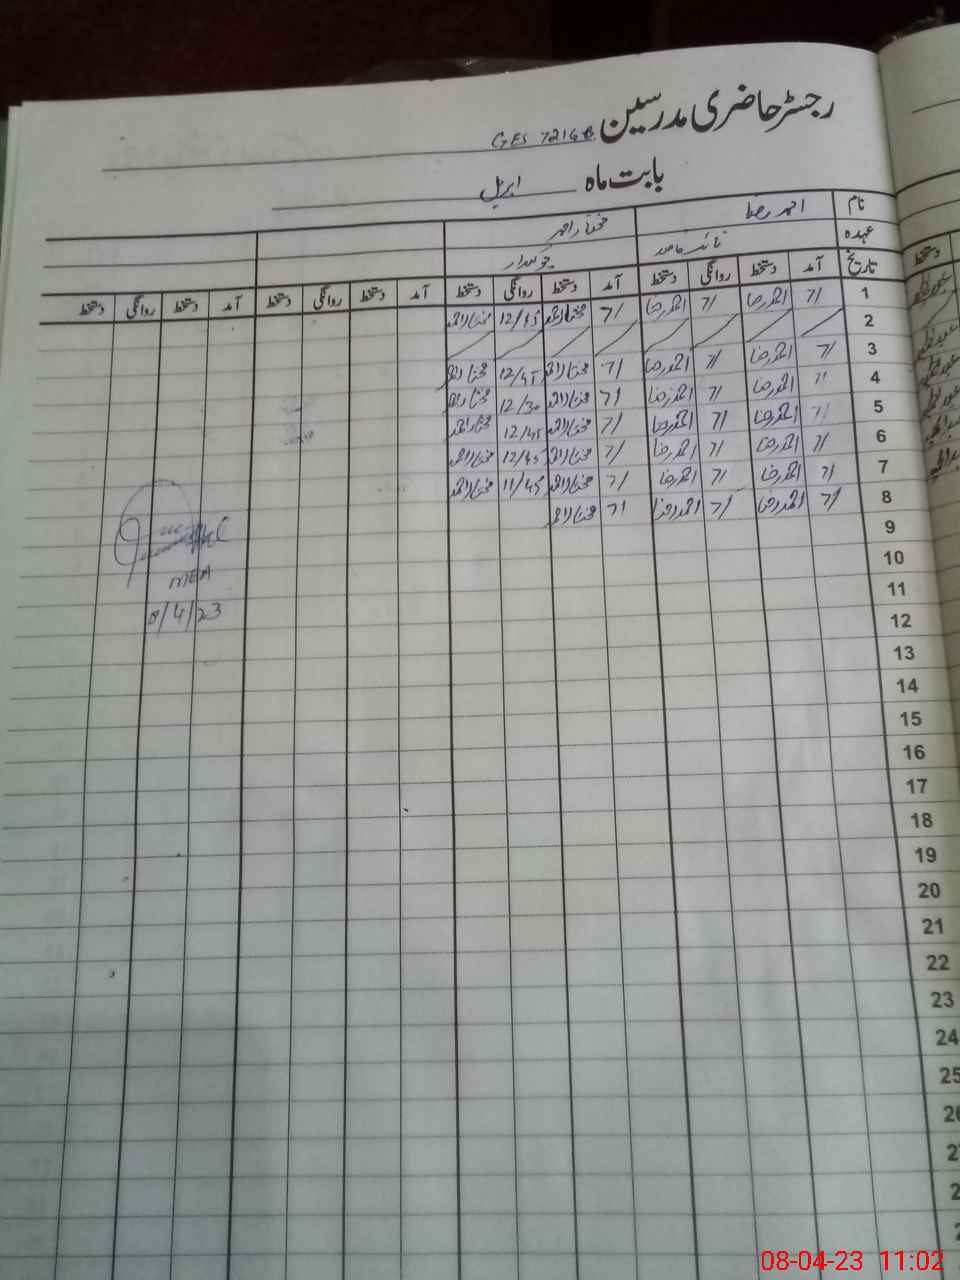 رجسٹر حاضری مدرسین GES 7216
بابت ماہ اپریل
نام احمد رضا مختار احمد
عہدہ نائب قاصد چوکیدار
تاریخ آمد دستخط روانگی دستخط آمد دستخط روانگی دستخط آمد دستخط روانگی دستخط آمد دستخط روانگی دستخط
1 7/ احمد رضا 7/ احمد رضا 7/ مختار احمد 12/45 مختار احمد
2
3 7/ احمد رضا 7/ احمد رضا 7/ مختار احمد 12/45 مختار احمد
4 7/ احمد رضا 7/ احمد رضا 7/ مختار احمد 12/30 مختار احمد
5 7/ احمد رضا 7/ احمد رضا 7/ مختار احمد 12/45 مختار احمد
6 7/ احمد رضا 7/ احمد رضا 7/ مختار احمد 12/45 مختار احمد
7 7/ احمد رضا 7/ احمد رضا 7/ مختار احمد 11/45 مختار احمد
8 7/ احمد رضا 7/ احمد رضا 7/ مختار احمد
9
10
11
12
13
14
15
16
17
18
19
20
21
22
23
24
25
MEA
8/4/23
دستخط
08-04-23 11:02